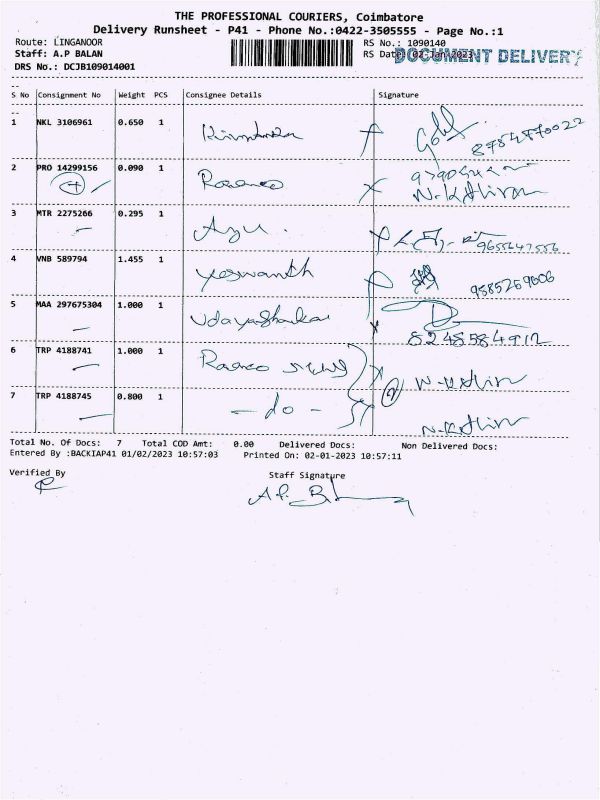 THE PROFESSIONAL COURIERS, Coimbatore
Delivery Runsheet - P41 - Phone No.:0422-3505555 - Page No.:1
Route: LINGANOOR RS No.: 1090140
Staff: A.P BALAN RS Date: 02-Jan-2023
DOCUMENT DELIVERY
DRS No.: DCJB109014001
S No Consignment No Weight PCS Consignee Details Signature
1 NKL 3106961 0.650 1
2 PRO 14299156 0.090 1
N.Kathiran
3 MTR 2275266 0.295 1 Azu. 9655647556
4 VNB 589794 1.455 1 Yeswanth 9585269606
5 MAA 297675304 1.000 1 Udayashankar
8248584912
6 TRP 4188741 1.000 1
7 TRP 4188745 0.800 1 - do -
Total No. Of Docs: 7 Total COD Amt: 0.00 Delivered Docs: Non Delivered Docs:
Entered By :BACKIAP41 01/02/2023 10:57:03 Printed On: 02-01-2023 10:57:11
Verified By Staff Signature